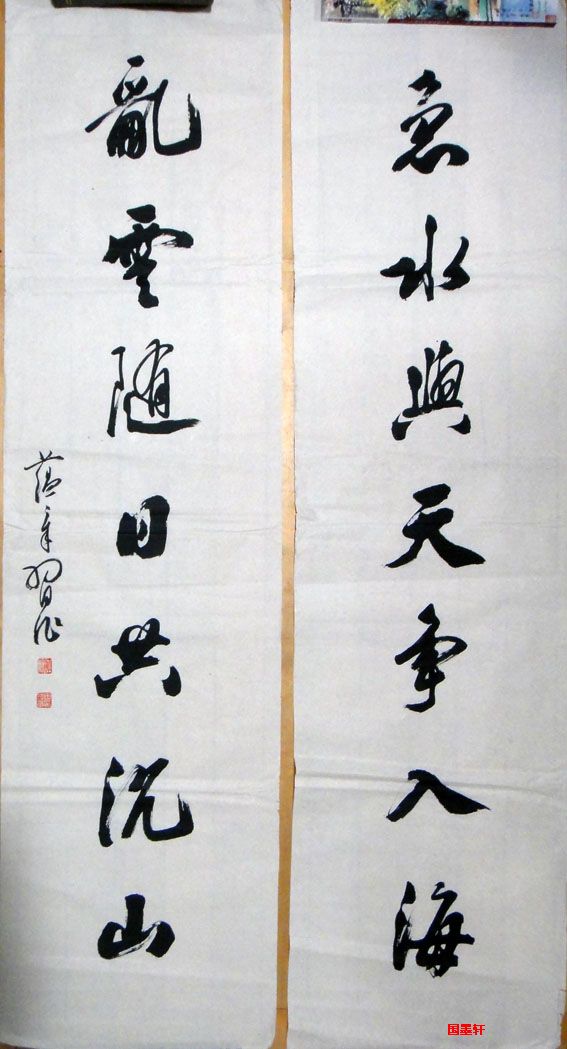 急水與天争入海
亂雲随日共沉山
蕴章習作
国墨轩